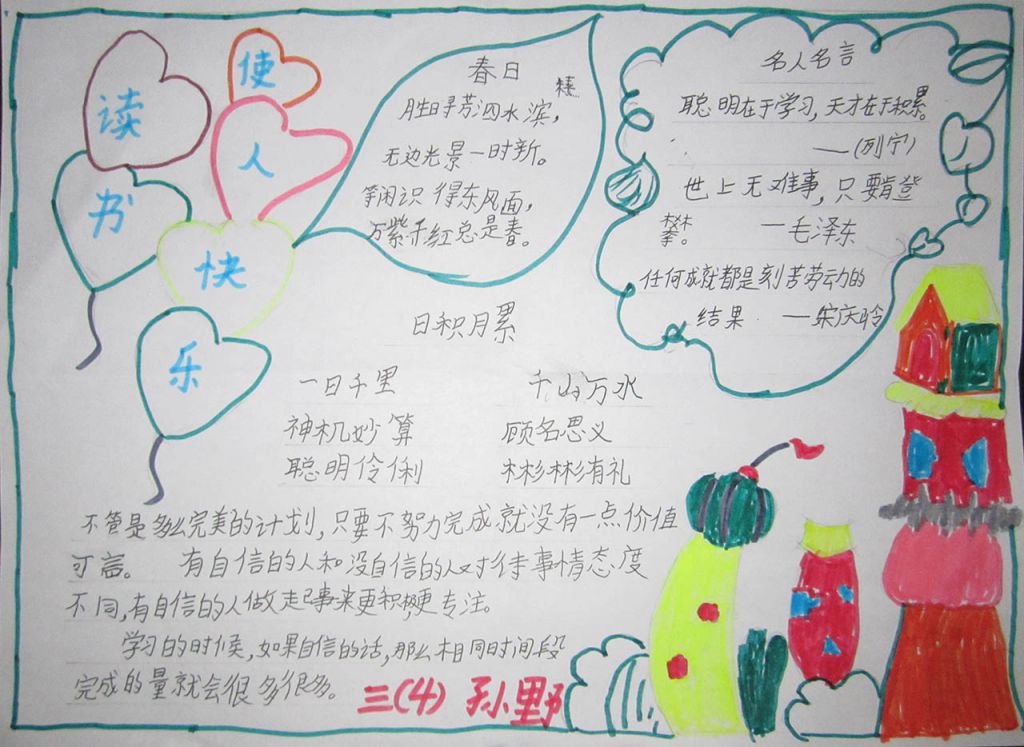 读书
使人快乐
春日
朱熹
胜日寻芳泗水滨,
无边光景一时新。
等闲识得东风面,
万紫千红总是春。
名人名言
聪明在于学习,天才在于积累。
——(列宁)
世上无难事,只要肯登
攀。 —毛泽东
任何成就都是刻苦劳动的
结果 —宋庆龄
日积月累
一日千里 千山万水
神机妙算 顾名思义
聪明伶俐 彬彬有礼
不管是多么完美的计划,只要不努力完成就没有一点价值
可言。 有自信的人和没自信的人对待事情态度
不同,有自信的人做起事来更积极更专注。
学习的时候,如果自信的话,那么相同时间段
完成的量就会很多很多。
三(4) 孙野